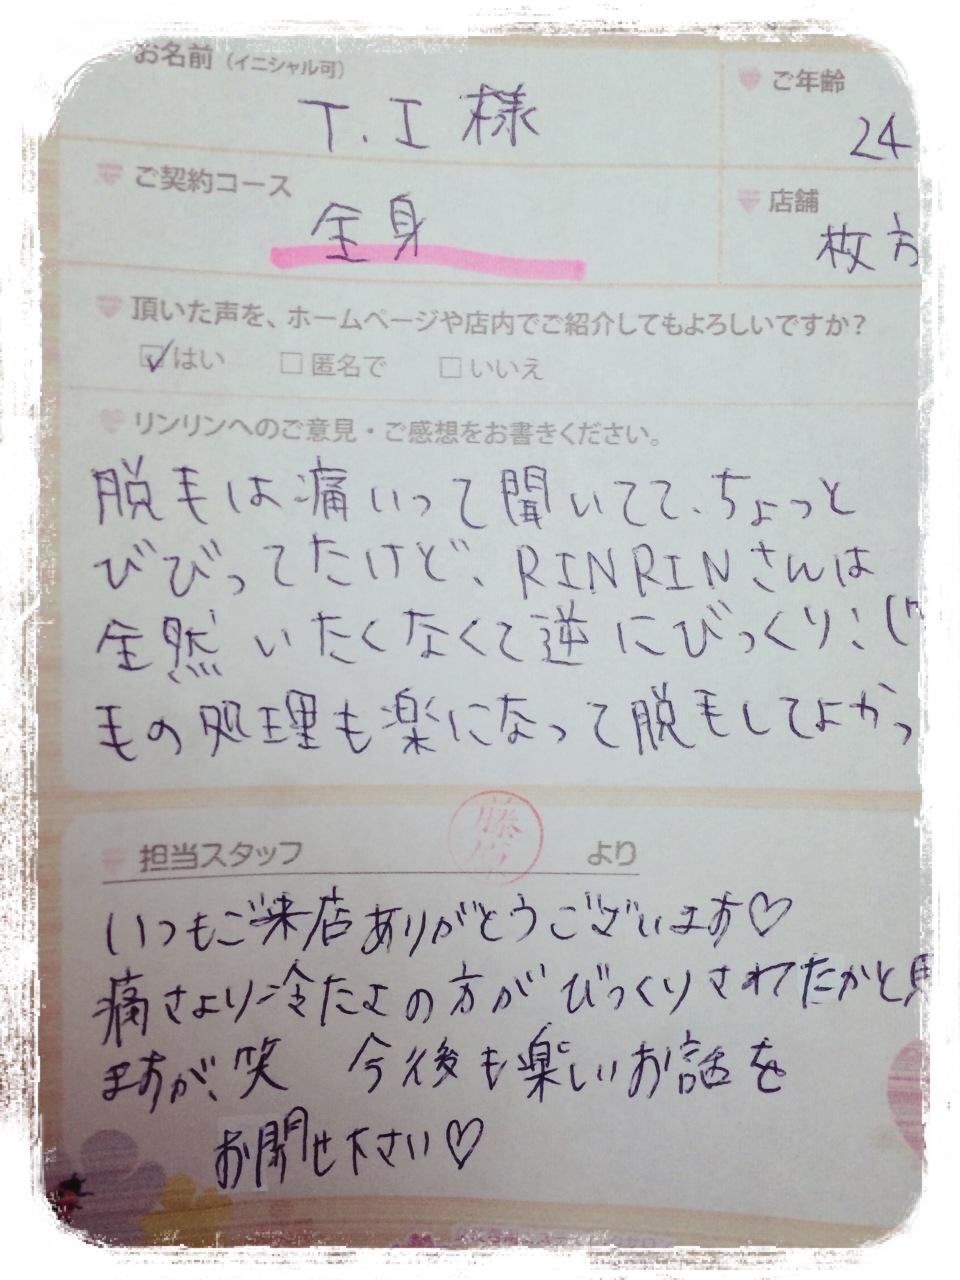 お名前（イニシャル可）
T.I様
ご年齢
24
ご契約コース
全身
店舗
枚方
頂いた声を、ホームページや店内でご紹介してもよろしいですか？
はい 匿名で いいえ
リンリンへのご意見・ご感想をお書きください。
脱毛は痛いって聞いてて、ちょっと
びびってたけど、RINRINさんは
全然いたくなくて逆にびっくり：
毛の処理も楽になって脱毛してよかっ
担当スタッフ より
いつもご来店ありがとうございます♡
痛さより冷たさの方がびっくりされたかと思
ますが、笑 今後も楽しいお話を
お聞せ下さい♡